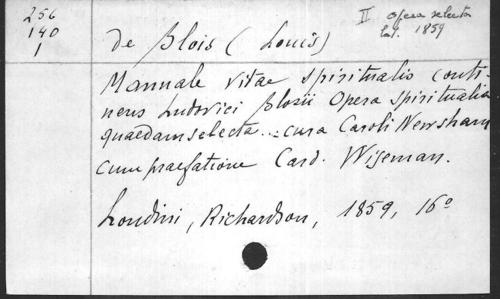 256
140
1
II opera selecta
lat. 1859
de Blois (Louis)
Manuale vitae spiritualis conti-
nens Ludovici Blosii Opera spiritualia
quaedam selecta... cura Caroli Newsham
cum praefatione Card. Wiseman.
Londini, Richardson, 1859, 16º